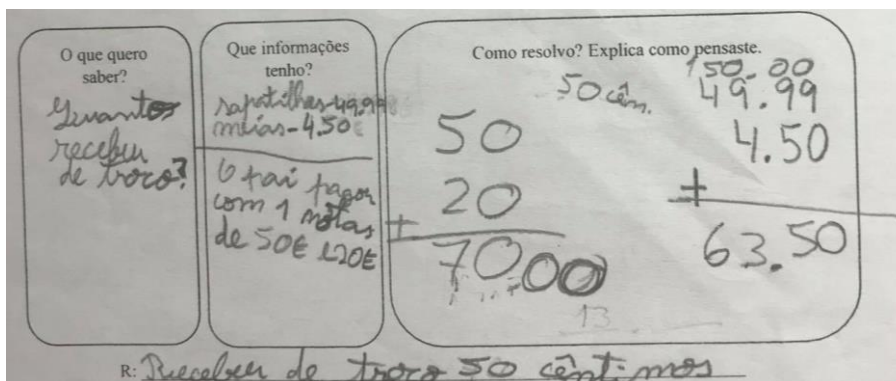 O que quero
saber?
Quanto
recebeu
de troco?
Que informações
tenho?
sapatilhas-49.99
meias-4.50€
O pai pagou
com 1 notas
de 50€ 20€
Como resolvo? Explica como pensaste.
50 cêm.
50
20
+
70.00
150.00
49.99
4.50
+
63.50
13
R: Recebeu de troco 50 cêntimos